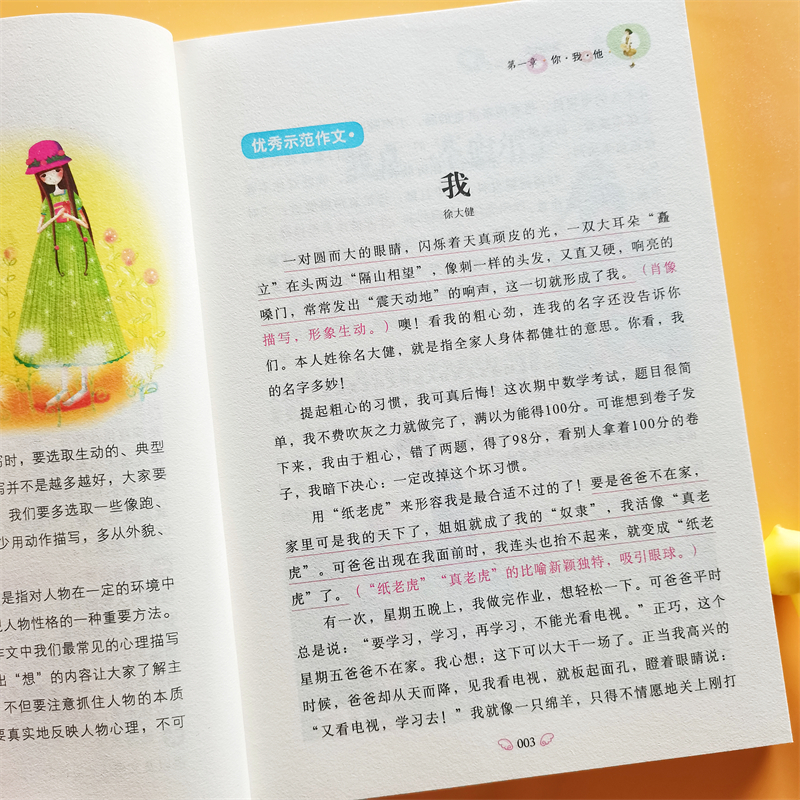 写时，要选取生动的、典型
写并不是越多越好，大家要
我们要多选取一些像跑、
少用动作描写，多从外貌、
是指对人物在一定的环境中
现人物性格的一种重要方法。
作文中我们最常见的心理描写
出“想”的内容让大家了解主
不但要注意抓住人物的本质
要真实地反映人物心理，不可
第一章·你·我·他
优秀示范作文
我
徐大健
一对圆而大的眼睛，闪烁着天真顽皮的光，一双大耳朵“矗
立”在头两边“隔山相望”，像刺一样的头发，又直又硬，响亮的
嗓门，常常发出“震天动地”的响声，这一切就形成了我。（肖像
描写，形象生动。）噢！看我的粗心劲，连我的名字还没告诉你
们。本人姓徐名大健，就是指全家人身体都健壮的意思。你看，我
的名字多妙！
提起粗心的习惯，我可真后悔！这次期中数学考试，题目很简
单，我不费吹灰之力就做完了，满以为能得100分。可谁想到卷子发
下来，我由于粗心，错了两题，得了98分，看别人拿着100分的卷
子，我暗下决心：一定改掉这个坏习惯。
用“纸老虎”来形容我是最合适不过的了！要是爸爸不在家，
家里可是我的天下了，姐姐就成了我的“奴隶”，我活像“真老
虎”。可爸爸出现在我面前时，我连头也抬不起来，就变成“纸老
虎”了。（“纸老虎”“真老虎”的比喻新颖独特，吸引眼球。）
有一次，星期五晚上，我做完作业，想轻松一下。可爸爸平时
总是说：“要学习，学习，再学习，不能光看电视。”正巧，这个
星期五爸爸不在家。我心想：这下可以大干一场了。正当我高兴的
时候，爸爸却从天而降，见我看电视，就板起面孔，瞪着眼睛说：
“又看电视，学习去！”我就像一只绵羊，只得不情愿地关上刚打
003